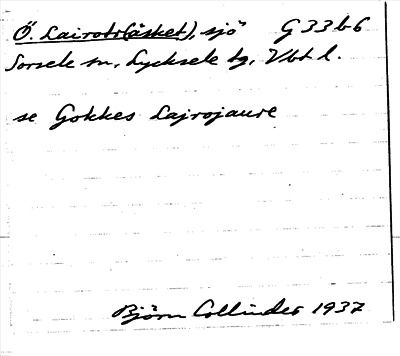 Ö. Lairotr(äsket), sjö G 33 b 6
Sorsele sn, Lycksele tg, Vbt l.
se Gokkes Lajrojaure
Björn Collinder 1937